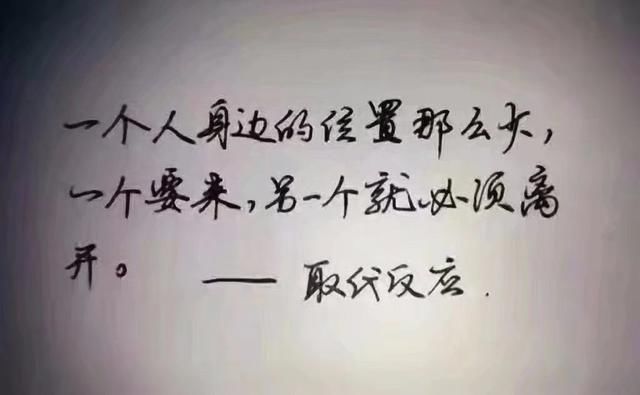 一个人身边的位置那么少，
一个要来，另一个就必须离
开。 —— 取代反应.